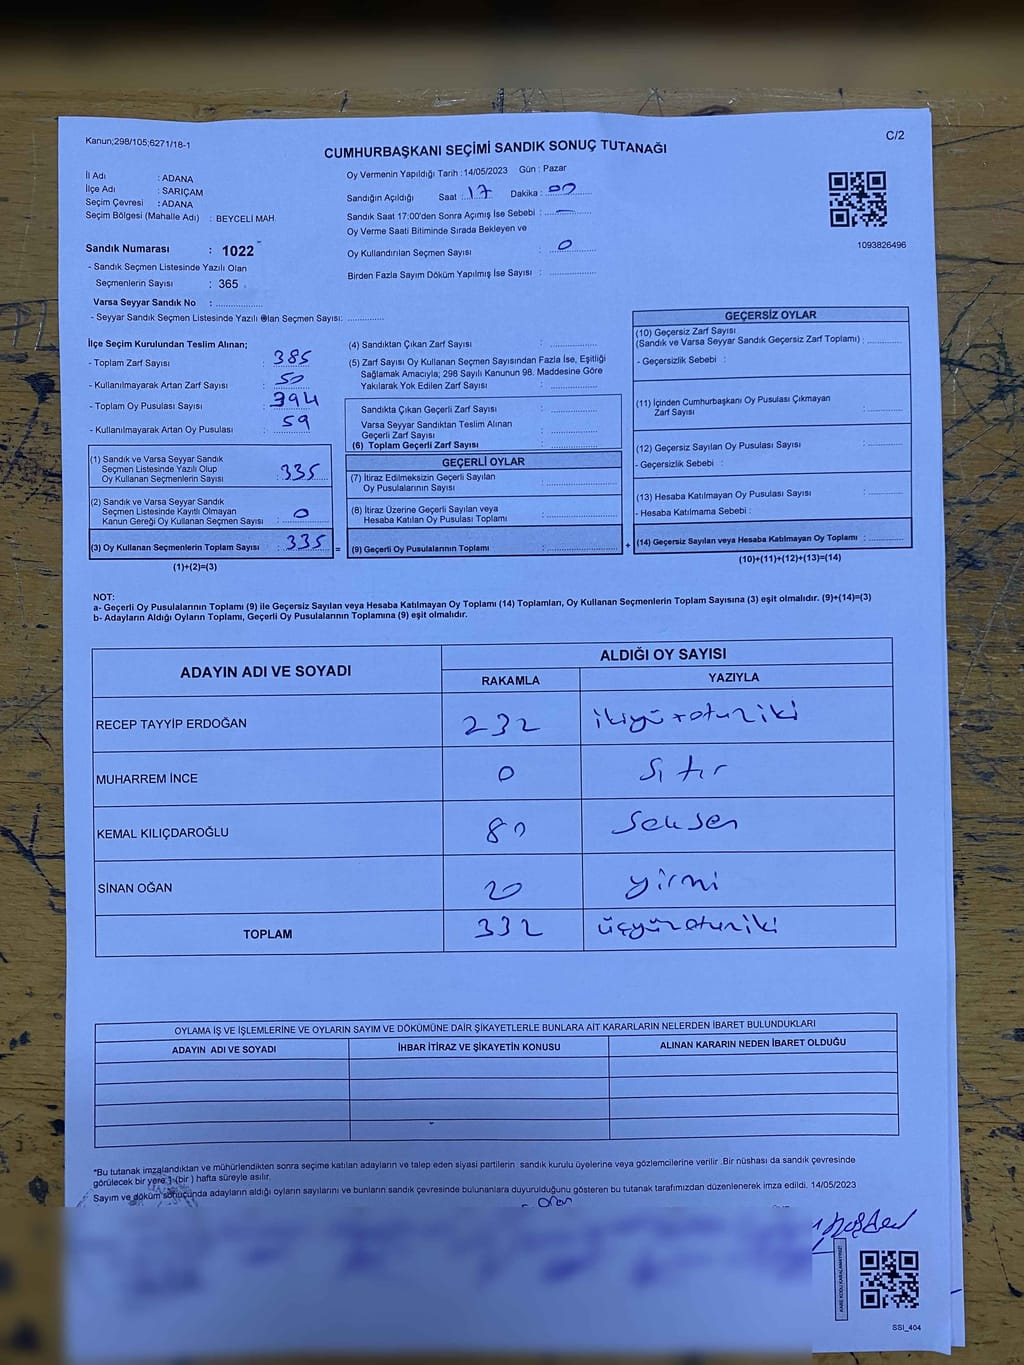 Kanun;298/105;6271/18-1
C/2
CUMHURBAŞKANI SEÇİMİ SANDIK SONUÇ TUTANAĞI
İl Adı : ADANA
İlçe Adı : SARIÇAM
Seçim Çevresi : ADANA
Seçim Bölgesi (Mahalle Adı) : BEYCELİ MAH.
Sandık Numarası : 1022
- Sandık Seçmen Listesinde Yazılı Olan
Seçmenlerin Sayısı : 365
Varsa Seyyar Sandık No : ................
- Seyyar Sandık Seçmen Listesinde Yazılı Olan Seçmen Sayısı: ............
Oy Vermenin Yapıldığı Tarih :14/05/2023 Gün : Pazar
Sandığın Açıldığı Saat : 17 Dakika : 00
Sandık Saat 17:00'den Sonra Açımış İse Sebebi : —
Oy Verme Saati Bitiminde Sırada Bekleyen ve
Oy Kullandırılan Seçmen Sayısı : 0
Birden Fazla Sayım Döküm Yapılmış İse Sayısı : ................
1093826496
İlçe Seçim Kurulundan Teslim Alınan;
- Toplam Zarf Sayısı : 385
- Kullanılmayarak Artan Zarf Sayısı : 50
- Toplam Oy Pusulası Sayısı : 394
- Kullanılmayarak Artan Oy Pusulası : 59
(1) Sandık ve Varsa Seyyar Sandık
Seçmen Listesinde Yazılı Olup
Oy Kullanan Seçmenlerin Sayısı : 335
(2) Sandık ve Varsa Seyyar Sandık
Seçmen Listesinde Kayıtlı Olmayan
Kanun Gereği Oy Kullanan Seçmen Sayısı : 0
(3) Oy Kullanan Seçmenlerin Toplam Sayısı : 335 =
(1)+(2)=(3)
(4) Sandıktan Çıkan Zarf Sayısı : ................
(5) Zarf Sayısı Oy Kullanan Seçmen Sayısından Fazla İse, Eşitliği
Sağlamak Amacıyla; 298 Sayılı Kanunun 98. Maddesine Göre
Yakılarak Yok Edilen Zarf Sayısı : ................
Sandıkta Çıkan Geçerli Zarf Sayısı : ................
Varsa Seyyar Sandıktan Teslim Alınan
Geçerli Zarf Sayısı : ................
(6) Toplam Geçerli Zarf Sayısı : ................
GEÇERLİ OYLAR
(7) İtiraz Edilmeksizin Geçerli Sayılan
Oy Pusulalarının Sayısı : ................
(8) İtiraz Üzerine Geçerli Sayılan veya
Hesaba Katılan Oy Pusulası Toplamı : ................
(9) Geçerli Oy Pusulalarının Toplamı : ................ +
GEÇERSİZ OYLAR
(10) Geçersiz Zarf Sayısı
(Sandık ve Varsa Seyyar Sandık Geçersiz Zarf Toplamı) : ............
- Geçersizlik Sebebi :
(11) İçinden Cumhurbaşkanı Oy Pusulası Çıkmayan
Zarf Sayısı : ............
(12) Geçersiz Sayılan Oy Pusulası Sayısı : ............
- Geçersizlik Sebebi :
(13) Hesaba Katılmayan Oy Pusulası Sayısı : ............
- Hesaba Katılmama Sebebi :
(14) Geçersiz Sayılan veya Hesaba Katılmayan Oy Toplamı : ............
(10)+(11)+(12)+(13)=(14)
NOT:
a- Geçerli Oy Pusulalarının Toplamı (9) ile Geçersiz Sayılan veya Hesaba Katılmayan Oy Toplamı (14) Toplamları, Oy Kullanan Seçmenlerin Toplam Sayısına (3) eşit olmalıdır. (9)+(14)=(3)
b- Adayların Aldığı Oyların Toplamı, Geçerli Oy Pusulalarının Toplamına (9) eşit olmalıdır.
ADAYIN ADI VE SOYADI ALDIĞI OY SAYISI
RAKAMLA YAZIYLA
RECEP TAYYİP ERDOĞAN 232 ikiyüzotuziki
MUHARREM İNCE 0 Sıfır
KEMAL KILIÇDAROĞLU 80 Seksen
SİNAN OĞAN 20 yirmi
TOPLAM 332 üçyüzotuziki
OYLAMA İŞ VE İŞLEMLERİNE VE OYLARIN SAYIM VE DÖKÜMÜNE DAİR ŞİKAYETLERLE BUNLARA AİT KARARLARIN NELERDEN İBARET BULUNDUKLARI
ADAYIN ADI VE SOYADI İHBAR İTİRAZ VE ŞİKAYETİN KONUSU ALINAN KARARIN NEDEN İBARET OLDUĞU
*Bu tutanak imzalandıktan ve mühürlendikten sonra seçime katılan adayların ve talep eden siyasi partilerin sandık kurulu üyelerine veya gözlemcilerine verilir .Bir nüshası da sandık çevresinde
görülecek bir yere 1 (bir ) hafta süreyle asılır.
Sayım ve döküm sonucunda adayların aldığı oyların sayılarını ve bunların sandık çevresinde bulunanlara duyurulduğunu gösteren bu tutanak tarafımızdan düzenlenerek imza edildi. 14/05/2023
KARE KODU KARALAMAYINIZ!
SSI_404